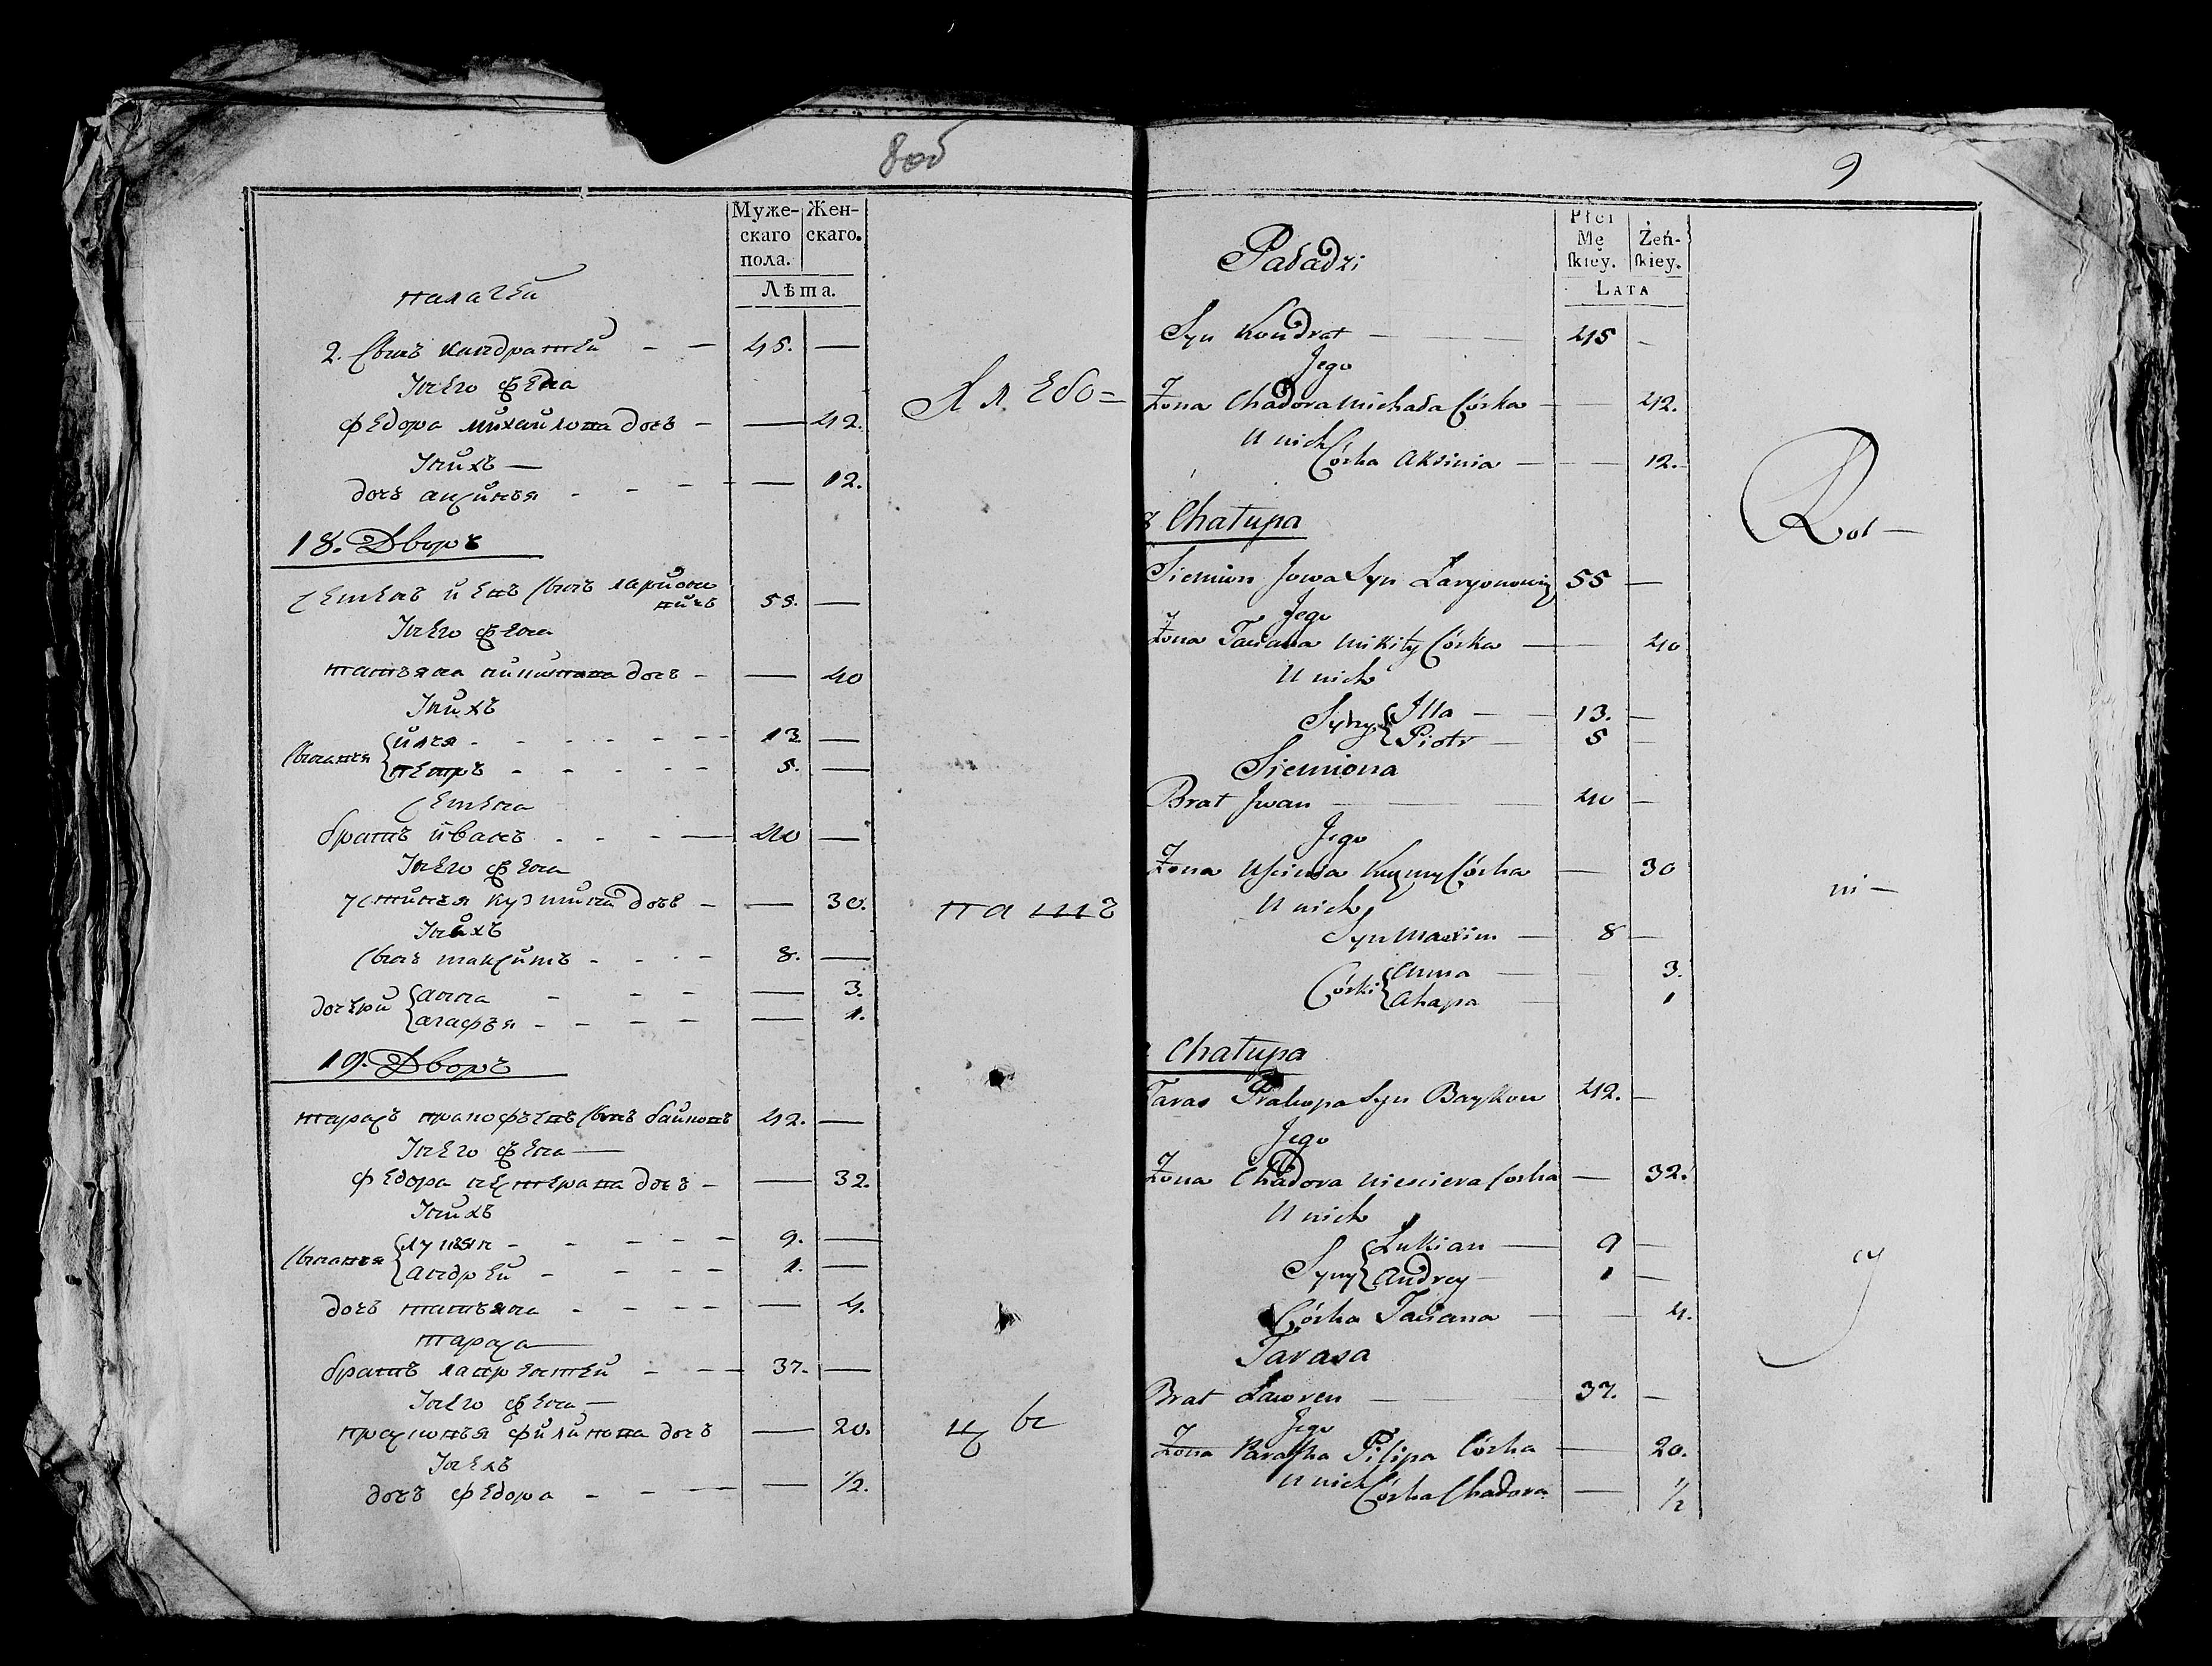 8об
Муже-
скаго
пола.
Жен-
скаго.
Лѣта.
палагеи
2. Сынъ кандратеи 45. —
Унего жена
федора михаилова дочь — 42.
Унихъ
дочь аксинья — 12.
Хлебо=
18. Дворъ
Семенъ сынъ ларионо
вичъ 55. —
Унего жена
татьяна никитина дочь — 40
Унихъ
Сыновья
илья 13 —
петръ 5. —
Семена
братъ иванъ 40 —
Унего жена
устинья кузмина дочь — 30.
Унихъ
Сынъ максимъ 8. —
пашъ
дочери
анна — 3.
агафья — 1.
19. Дворъ
тарасъ сынъ баиковъ 42. —
Унего жена
федора нестерава дочь — 32.
Унихъ
Сыновья
лукян 9. —
андреи 1. —
дочь татьяна — 4.
тараса
братъ лаврентеи 37. —
Унего жена
прасковья филипова дочь — 20.
Унихъ
дочь федора — 1/2.
9
Płci
Mę
skiey.
Żeń-
skiey.
LATA
Syn Kondrat 45 —
Jego
Żona Chadora Michała Córka — 42.
U nich
Córka Aksinia — 12.
Rot—
8 Chałupa
Siemion Jowa Syn Laryonowicz 55 —
Jego
Żona Taciana Mikity Córka — 40
U nich
Syny
Illa 13. —
Piotr 5 —
Siemiona
Brat Jwan 40 —
Jego
Żona Uscinia Kuzmy Córka — 30
U nich
Syn Maxim 8 —
mi—
Córki
Anna — 3.
Ahapa — 1
Chałupa
Taras Prakopa Syn Baykow 42. —
Jego
Żona Chadora Niesciera Corka — 32.
U nich
Syny
Lukian 9 —
Andrey 1 —
Córka Taciana — 4.
Tarasa
Brat Lawren 37. —
Jego
Żona Paraska Pilipa Córka — 20.
U nich Córka Chadora — 1/2